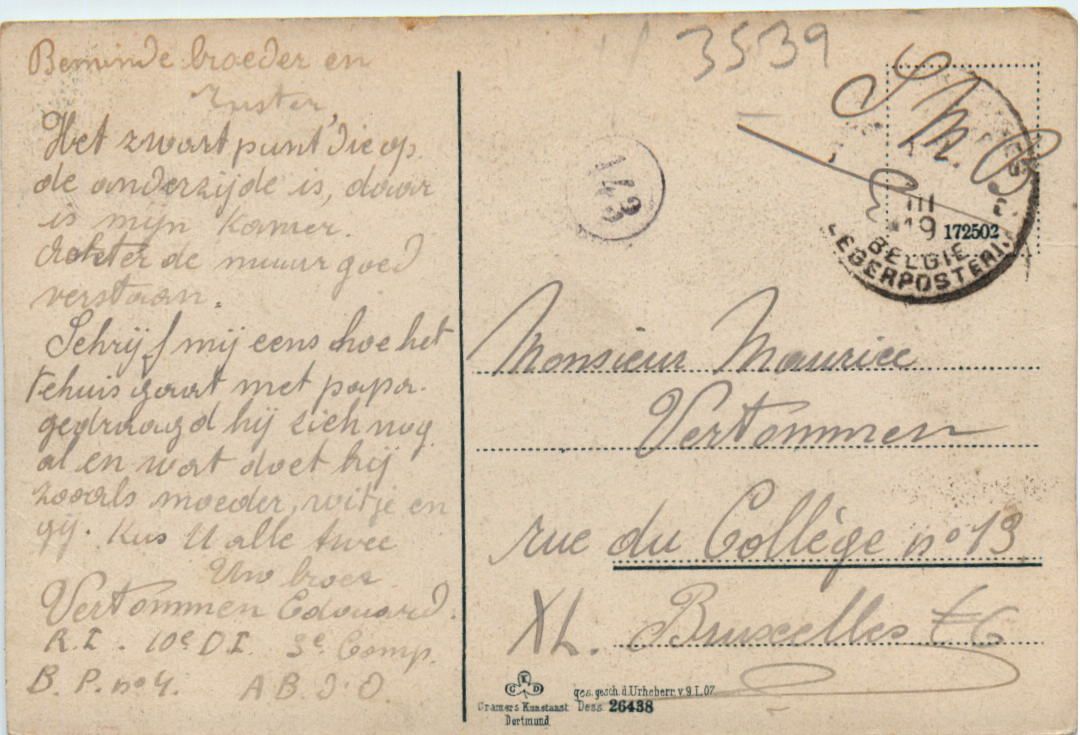 Beminde broeder en
Zuster
Het zwart punt die op
de anderzijde is, daar
is mijn Kamer.
Achter de muur goed
verstaan.
Schrijf mij eens hoe het
tehuis gaat met papa.
gedraagd hij zich nog
al en wat doet hij
zooals moeder, witje en
gij. Kus U alle twee
Uw broer
Vertommen Edouard.
R.I. 10e D.I. 3e Comp.
B.P. no 4. A B.O.O
3539
S. M. B
143
III
19
BELGIE
LEGERPOSTERIJ
172502
Monsieur Maurice
Vertommen
rue du Collège no 13
XL. Bruxelles
CKD
Cramers Kunstanst
Dortmund
ges. gesch. d. Urheberr. v 9.1.07
Dess 26438